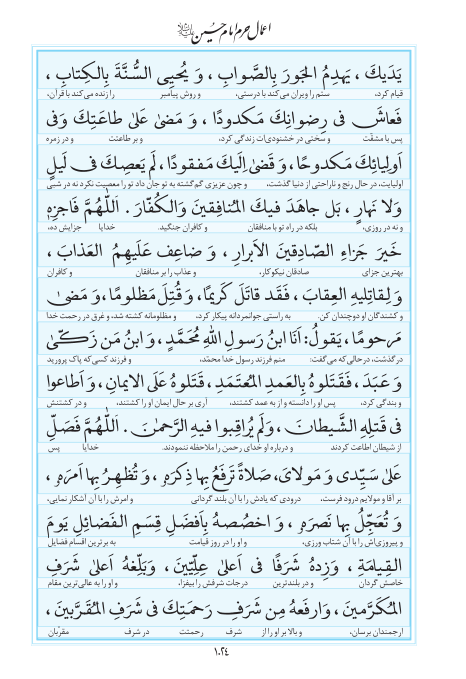 اعمال حرم امام حسین
يَدَيكَ ، يَهدِمُ الجَورَ بِالصَّوابِ ، وَ يُحيِى السُّنَّةَ بِالكِتابِ ،
قیام کرد، ستم را ویران می‌کند با درستی، و روش پیامبر را زنده می‌کند با قرآن،
فَعاشَ فى رِضوانِكَ مَكدودًا ، وَ مَضىٰ عَلىٰ طاعَتِكَ وَفى
پس با مشقّت و سختی در خشنودی‌ات زندگی کرد، و بر طاعتت و در زمره
اَولِيائِكَ مَكدوحًا، وَ قَضىٰ اِلَيكَ مَفقودًا ، لَم يَعصِكَ فى لَيلٍ
اولیایت، در حال رنج و ناراحتی از دنیا گذشت، و چون عزیزی گم‌گشته به تو جان داد تو را معصیت نکرد نه در شبی
وَلا نَهارٍ ، بَل جاهَدَ فيكَ المُنافِقينَ وَالكُفّارَ . اَللّٰهُمَّ فَاجزِهِ
و نه در روزی، بلکه در راه تو با منافقان و کافران جنگید. خدایا جزایش ده،
خَيرَ جَزاءِ الصّادِقينَ الاَبرارِ ، وَ ضاعِف عَلَيهِمُ العَذابَ ،
بهترین جزای صادقان نیکوکار، و عذاب را بر منافقان و کافران
وَ لِقاتِليهِ العِقابَ ، فَقَد قاتَلَ كَريمًا، وَ قُتِلَ مَظلومًا، وَ مَضىٰ
و کشندگان او دوچندان کن. به راستی جوانمردانه پیکار کرد، و مظلومانه کشته شد، و غرق در رحمت خدا
مَرحومًا ، يَقولُ: اَنَا ابنُ رَسولِ اللّٰهِ مُحَمَّدٍ ، وَ ابنُ مَن زَكّىٰ
درگذشت، در حالی که می‌گفت: منم فرزند رسول خدا محمّد، و فرزند کسی که پاک پرورید
وَ عَبَدَ ، فَقَتَلوهُ بِالعَمدِ المُعتَمَدِ ، قَتَلوهُ عَلَى الايمانِ ، وَ اَطاعوا
و بندگی کرد، پس او را دانسته و از به عمد کشتند، آری بر حال ایمان او را کشتند، و در کشتنش
فى قَتلِهِ الشَّيطانَ ، وَلَم يُراقِبوا فيهِ الرَّحمٰنَ . اَللّٰهُمَّ فَصَلِّ
از شیطان اطاعت کردند و درباره او خدای رحمن را ملاحظه ننمودند. خدایا پس
عَلىٰ سَيِّدى وَ مَولاىَ، صَلاةً تَرفَعُ بِها ذِكرَهُ ، وَ تُظهِرُ بِها اَمرَهُ ،
بر آقا و مولایم درود فرست، درودی که یادش را با آن بلند گردانی و امرش را با آن آشکار نمایی،
وَ تُعَجِّلُ بِها نَصرَهُ ، وَ اخصُصهُ بِاَفضَلِ قِسَمِ الفَضائِلِ يَومَ
و پیروزی‌اش را با آن شتاب ورزی، و او را در روز قیامت به برترین اقسام فضایل
القِيامَةِ ، وَ زِدهُ شَرَفًا فى اَعلىٰ عِلِّيّينَ ، وَبَلِّغهُ اَعلىٰ شَرَفِ
خاصش گردان و در بلندترین درجات شرفش را بیفزا، و او را به عالی‌ترین مقام
المُكَرَّمينَ ، وَارفَعهُ مِن شَرَفِ رَحمَتِكَ فى شَرَفِ المُقَرَّبينَ ،
ارجمندان برسان، و بالا بر او را از شرف رحمتت در شرف مقرّبان
١٠٢٤